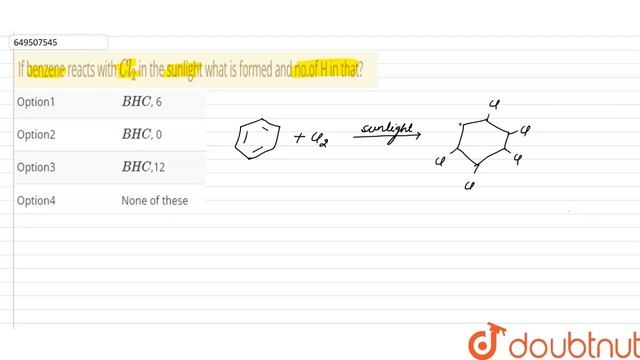 649507545
If benzene reacts with Cl₂ in the sunlight what is formed and no.of H in that?
Option1 BHC, 6
Option2 BHC, 0
Option3 BHC,12
Option4 None of these
+ Cl₂ sunlight
Cl
Cl
Cl
Cl
Cl
doubtnut